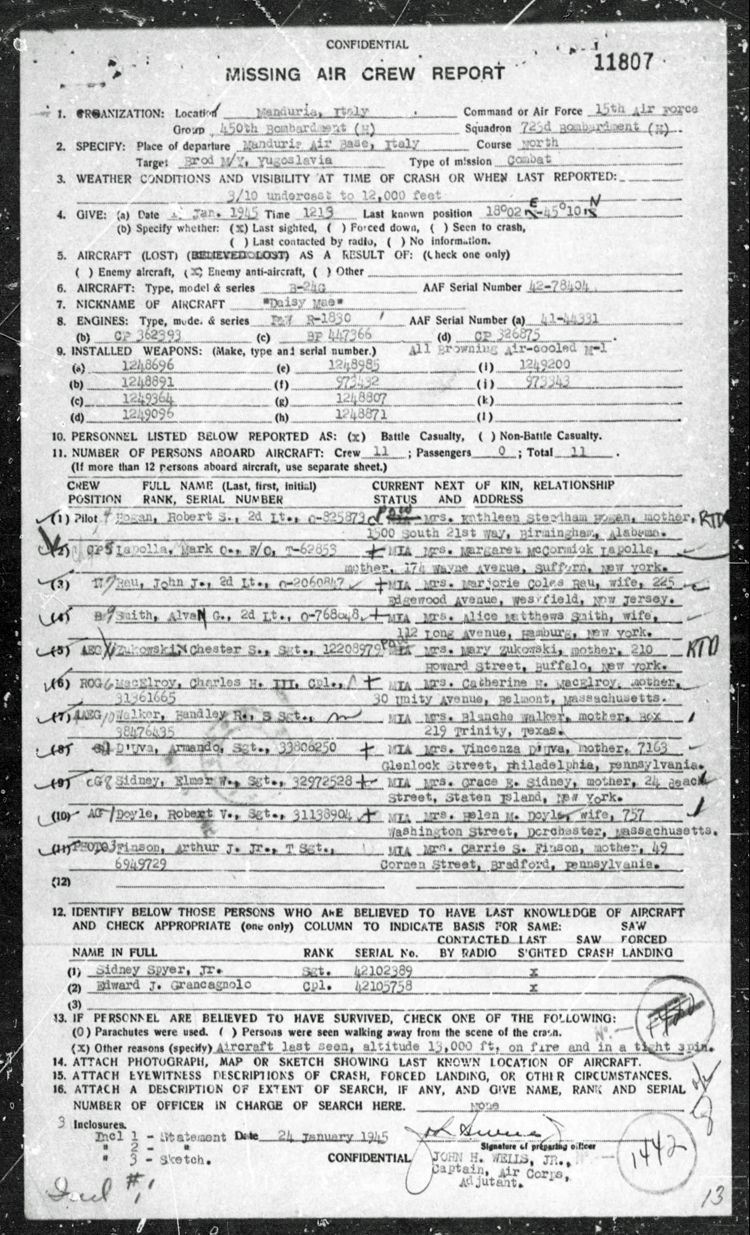 CONFIDENTIAL
MISSING AIR CREW REPORT
11807
1. ORGANIZATION: Location Manduria, Italy Command or Air Force 15th Air Force
Group 450th Bombardment (H) Squadron 723d Bombardment (H)
2. SPECIFY: Place of departure Manduria Air Base, Italy Course North
Target Brod M/Y, Yugoslavia Type of mission Combat
3. WEATHER CONDITIONS AND VISIBILITY AT TIME OF CRASH OR WHEN LAST REPORTED:
3/10 undercast to 12,000 feet
4. GIVE: (a) Date Jan. 1945 Time 1213 Last known position 18°02 E-45°10 N
(b) Specify whether: (x) Last sighted, ( ) Forced down, ( ) Seen to crash,
( ) Last contacted by radio, ( ) No information.
5. AIRCRAFT (LOST) (BELIEVED LOST) AS A RESULT OF: (Check one only)
( ) Enemy aircraft, (X) Enemy anti-aircraft, ( ) Other
6. AIRCRAFT: Type, model & series B-24G AAF Serial Number 42-78404
7. NICKNAME OF AIRCRAFT "Daisy Mae"
8. ENGINES: Type, mode. & series P&W R-1830 AAF Serial Number (a) 41-44331
(b) CP 362393 (c) BP 447366 (d) CP 326875
9. INSTALLED WEAPONS: (Make, type and serial number.) All Browning Air-cooled M-1
(a) 1248696 (e) 1248985 (i) 1249200
(b) 1248891 (f) 973432 (j) 973343
(c) 1249364 (g) 1248807 (k)
(d) 1249096 (h) 1248871 (l)
10. PERSONNEL LISTED BELOW REPORTED AS: (x) Battle Casualty, ( ) Non-Battle Casualty.
11. NUMBER OF PERSONS ABOARD AIRCRAFT: Crew 11 ; Passengers 0 ; Total 11 .
(If more than 12 persons aboard aircraft, use separate sheet.)
CREW FULL NAME (Last, first, initial) CURRENT NEXT OF KIN, RELATIONSHIP
POSITION RANK, SERIAL NUMBER STATUS AND ADDRESS
(1) Pilot Hogan, Robert S., 2d Lt., O-825873 POW Mrs. Kathleen Steedham Hogan, mother, RTD
1500 South 21st Way, Birmingham, Alabama.
(2) CP Lapolla, Mark O., F/O, T-62853 + MIA Mrs. Margaret McCormick Lapolla,
mother, 174 Wayne Avenue, Suffern, New York.
(3) N Rau, John J., 2d Lt., O-2060847 + MIA Mrs. Marjorie Coles Rau, wife, 225
Edgewood Avenue, Westfield, New Jersey.
(4) B Smith, Alva N G., 2d Lt., O-768048, + MIA Mrs. Alice Matthews Smith, wife,
112 Long Avenue, Hamburg, New York.
(5) AEG Zukowski, Chester S., Sgt., 12208979 POW Mrs. Mary Zukowski, mother, 210 RTD
Howard Street, Buffalo, New York.
(6) ROG MacElroy, Charles H. III, Cpl., + MIA Mrs. Catherine H. MacElroy, mother,
31361665 30 Unity Avenue, Belmont, Massachusetts.
(7) AAEG Walker, Handley R., S Sgt., MIA Mrs. Blanche Walker, mother, Box
38476435 219 Trinity, Texas.
(8) D'Uva, Armando, Sgt., 33806250 + MIA Mrs. Vincenza D'Uva, mother, 7163
Glenlock Street, Philadelphia, Pennsylvania.
(9) CG Sidney, Elmer W., Sgt., 32972528 + MIA Mrs. Grace E. Sidney, mother, 24 Beach
Street, Staten Island, New York.
(10) AG Doyle, Robert V., Sgt., 31138904 + MIA Mrs. Helen M. Doyle, wife, 757
Washington Street, Dorchester, Massachusetts.
(11) PHOTO Finson, Arthur J. Jr., T Sgt., MIA Mrs. Carrie S. Finson, mother, 49
6949729 Cornen Street, Bradford, Pennsylvania.
(12)
12. IDENTIFY BELOW THOSE PERSONS WHO ARE BELIEVED TO HAVE LAST KNOWLEDGE OF AIRCRAFT
AND CHECK APPROPRIATE (one only) COLUMN TO INDICATE BASIS FOR SAME: SAW
CONTACTED LAST SAW FORCED
NAME IN FULL RANK SERIAL No. BY RADIO SIGHTED CRASH LANDING
(1) Sidney Spyer, Jr. Sgt. 42102389 x
(2) Edward J. Grancagnolo Cpl. 42105758 x
(3)
13. IF PERSONNEL ARE BELIEVED TO HAVE SURVIVED, CHECK ONE OF THE FOLLOWING:
(0) Parachutes were used. ( ) Persons were seen walking away from the scene of the crash.
(X) Other reasons (specify) Aircraft last seen, altitude 13,000 ft, on fire and in a tight spin.
14. ATTACH PHOTOGRAPH, MAP OR SKETCH SHOWING LAST KNOWN LOCATION OF AIRCRAFT.
15. ATTACH EYEWITNESS DESCRIPTIONS OF CRASH, FORCED LANDING, OR OTHER CIRCUMSTANCES.
16. ATTACH A DESCRIPTION OF EXTENT OF SEARCH, IF ANY, AND GIVE NAME, RANK AND SERIAL
NUMBER OF OFFICER IN CHARGE OF SEARCH HERE. None
3 Inclosures.
Incl 1 - Statement Date 24 January 1945
" 2 - " Signature of preparing officer
" 3 - Sketch. CONFIDENTIAL JOHN H. WELLS, JR.,
Captain, Air Corps,
Adjutant.
1442
Incl #1
13